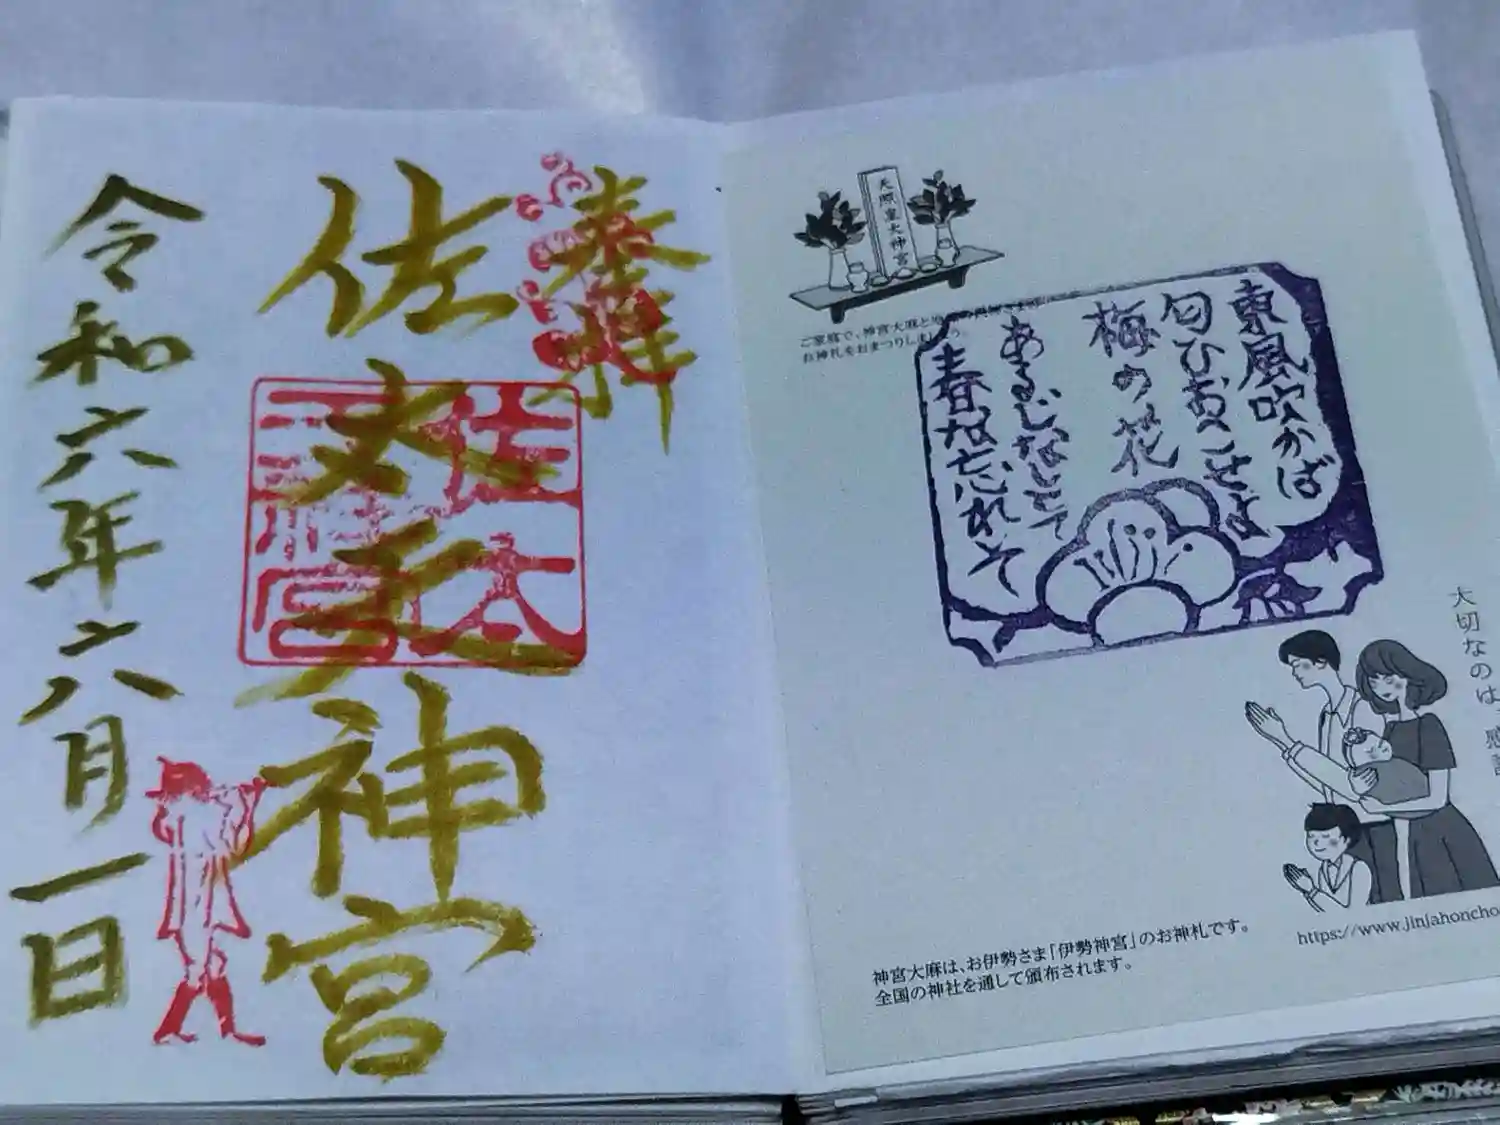 奉拝
佐太天神宮
佐太
天神宮
令和六年六月一日
天照皇大神宮
ご家庭で、神宮大麻と
お神札をおまつりしましょう。
東風吹かば
匂ひおこせよ
梅の花
あるじなしとて
春な忘れそ
大切なのは
https://www.jinjahoncho
神宮大麻は、お伊勢さま「伊勢神宮」のお神札です。
全国の神社を通して頒布されます。